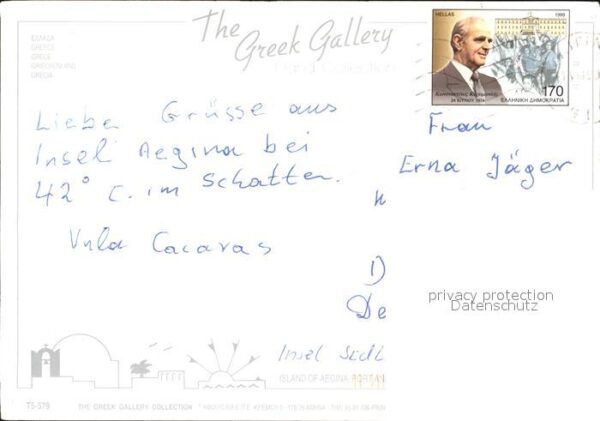 ΕΛΛΑΔΑ
GREECE
GRECE
GRIECHENLAND
GRECIA
The
Greek Gallery
HELLAS
170
ΕΛΛΗΝΙΚΗ ΔΗΜΟΚΡΑΤΙΑ
Liebe Grüsse aus
Insel Aegina bei
42° C. im Schatten.
Vula Cacaras
Frau
Erna Jäger
D
De
privacy protection
Datenschutz
Insel
ISLAND OF AEGINA
TS-579
THE GREEK GALLERY COLLECTION